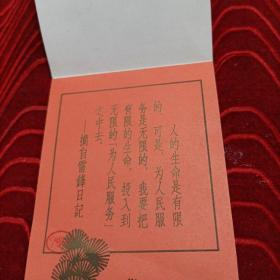 人的生命是有限
的 可是 为人民服
务是无限的，我要把
有限的生命，投入到
无限的“为人民服务”
之中去。
——摘自雷鋒日記